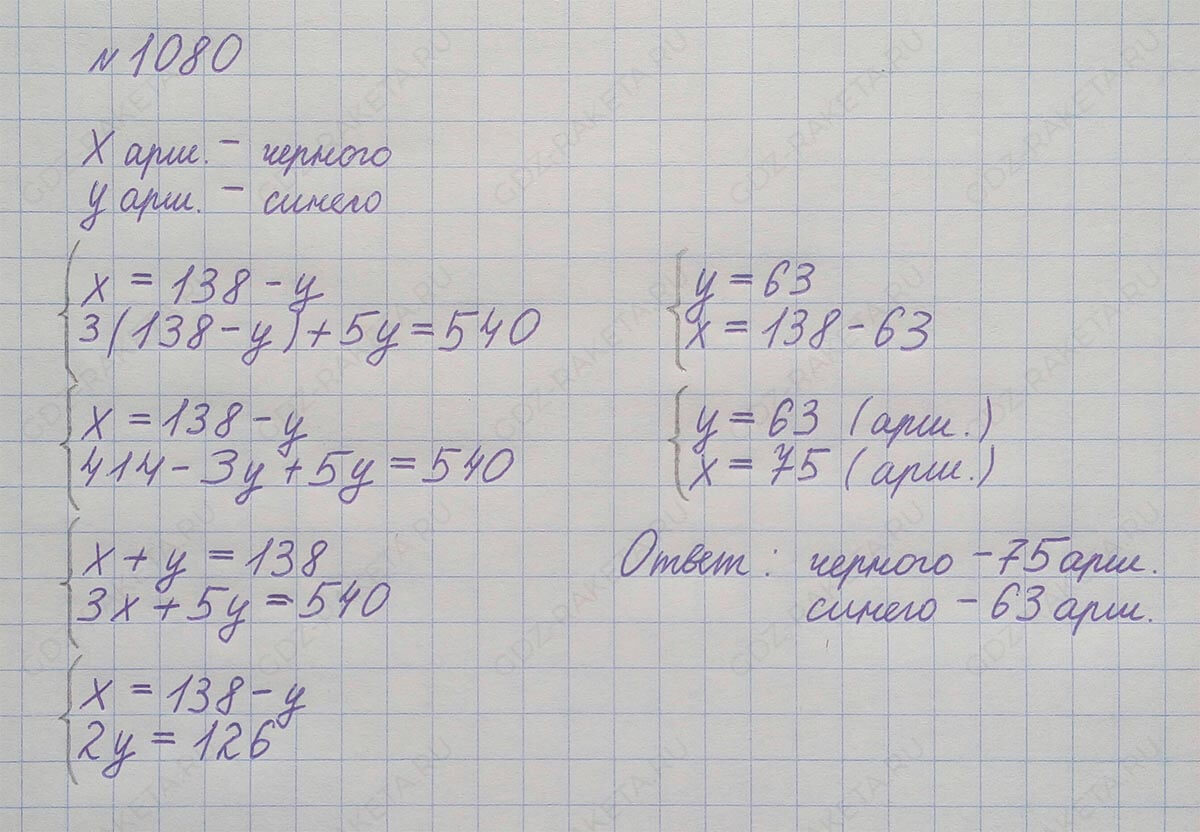 №1080
X арш. – черного
y арш. – синего
x = 138 – y
3(138 – y) + 5y = 540
x = 138 – y
414 – 3y + 5y = 540
x + y = 138
3x + 5y = 540
x = 138 – y
2y = 126
y = 63
x = 138 – 63
y = 63 (арш.)
x = 75 (арш.)
Ответ: черного – 75 арш.
синего – 63 арш.
GDZ-RAKETA.RU